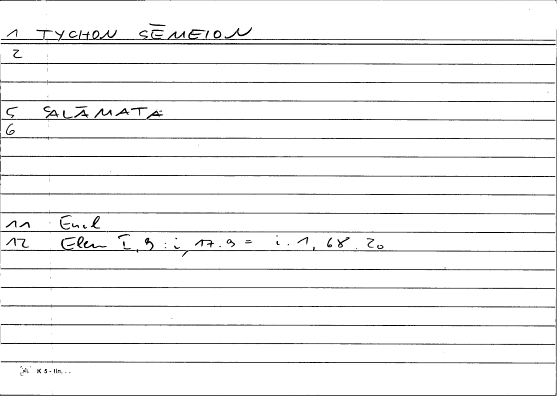 1 TYCHON SĒMEION
2
5 SALĀMATA
6
11 Eucl
12 Elem I, 9 : i, 17. 9 = i. 1, 68. 20
K 5 - lin. . .